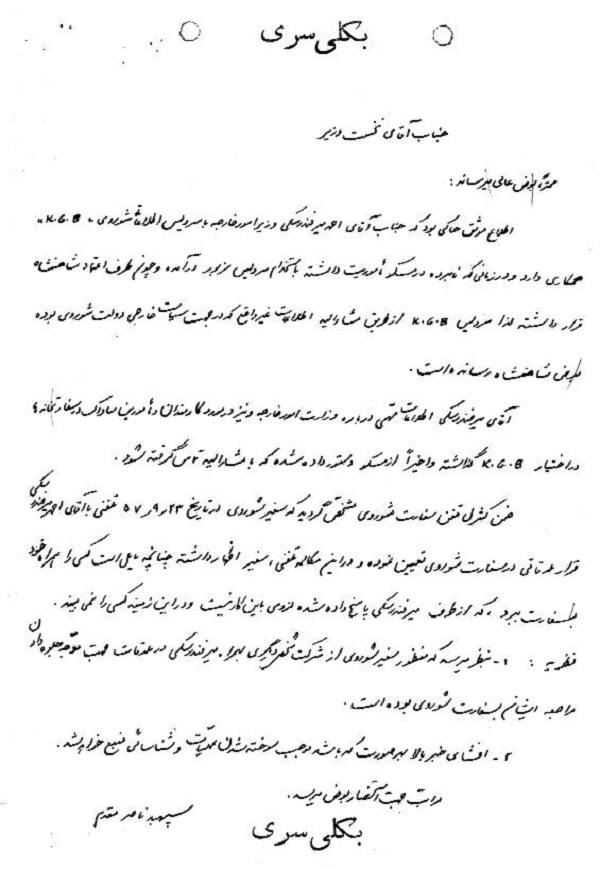 بکلی سری
جناب آقای نخست وزیر
محترماً بعرض عالی میرساند:
اطلاع موثق حاکی بود که جناب آقای احمد میرفندرسکی وزیر امور خارجه با سرویس اطلاعاتی شوروی "K.G.B"
همکاری دارد و در زمانی که نامبرده در مسکو مأموریت داشته باستخدام سرویس مزبور درآمده و چون طرف اعتماد شاهنشاه
قرار داشته لذا سرویس K.G.B از طریق مشارالیه اطلاعات غیر واقع که در جهت سیاست خارجی دولت شوروی بوده
بعرض شاهنشاه رسانده است.
آقای میرفندرسکی اطلاعات مهمی درباره وزارت امور خارجه و نیز در مورد کارمندان و مأمورین ساواک در سفارتخانه ها
در اختیار K.G.B گذاشته و اخیراً از مسکو دستور داده شده که با مشارالیه تماس گرفته شود.
ضمن کنترل تلفن سفارت شوروی مشخص گردید که سفیر شوروی در تاریخ ۲۳ر۹ر۵۷ تلفنی با آقای احمد میرفندرسکی
قرار ملاقاتی در سفارت شوروی تعیین نموده و در این مکالمه تلفنی، سفیر اظهار داشته چنانچه مایل است کسی را همراه خود
بسفارت ببرد، که از طرف میرفندرسکی پاسخ داده شده لزومی باین کار نیست و در این زمینه کسی را نمی بیند.
نظریه: ۱- بنظر میرسد که منظور سفیر شوروی از شرکت شخص دیگری بهمراه میرفندرسکی در ملاقات جهت موجه جلوه دادن
مراجعه ایشان بسفارت شوروی بوده است.
۲- افشای خبر بالا بهر صورت که باشد موجب سوخته شدن عملیات و شناسائی منبع خواهد شد.
مراتب جهت استحضار بعرض میرسد.
سپهبد ناصر مقدم
بکلی سری